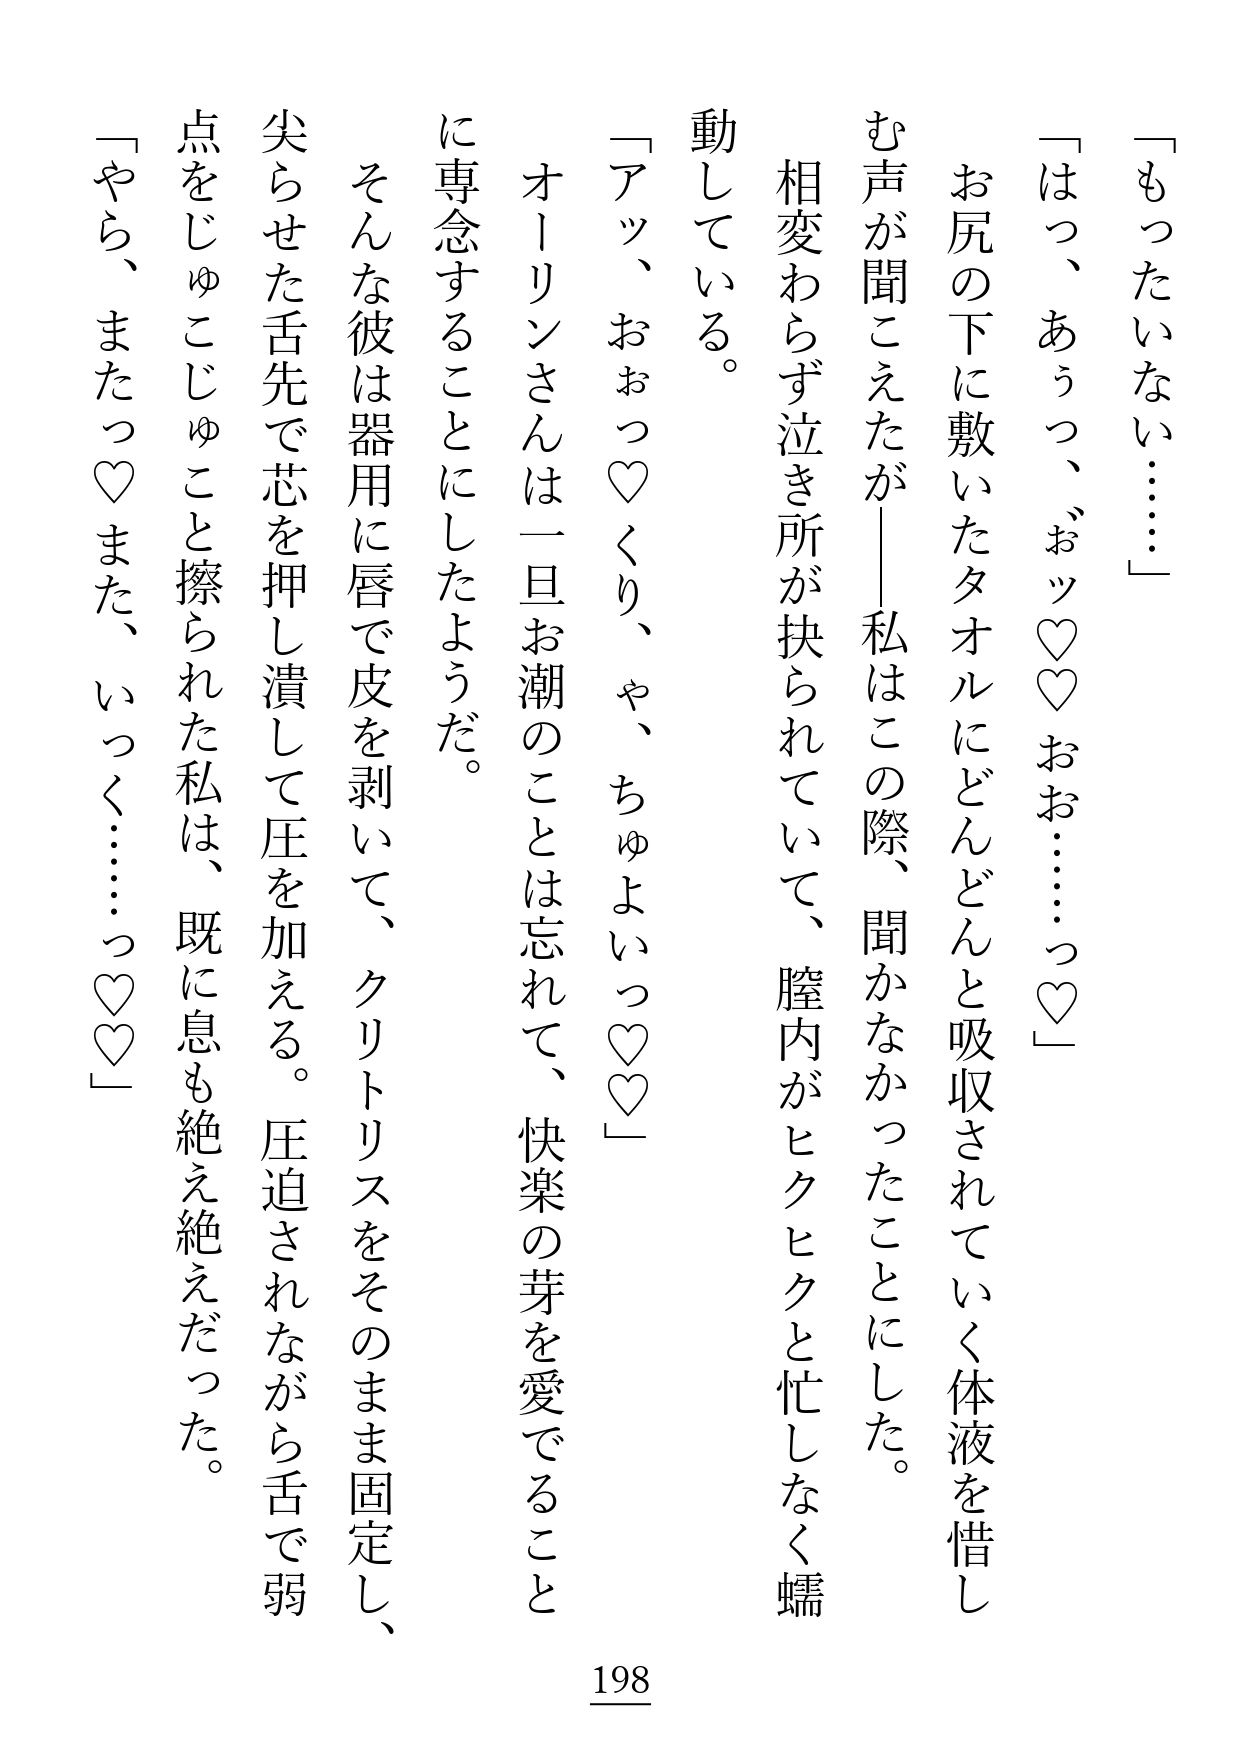 「もったいない……」
「はっ、あぅっ、ぉ゛ッ♡♡おお……っ♡」
　お尻の下に敷いたタオルにどんどんと吸収されていく体液を惜し
む声が聞こえたが――私はこの際、聞かなかったことにした。
　相変わらず泣き所が抉られていて、膣内がヒクヒクと忙しなく蠕
動している。
「アッ、おぉっ♡くり、ゃ、ちゅよいっ♡♡」
　オーリンさんは一旦お潮のことは忘れて、快楽の芽を愛でること
に専念することにしたようだ。
　そんな彼は器用に唇で皮を剥いて、クリトリスをそのまま固定し、
尖らせた舌先で芯を押し潰して圧を加える。圧迫されながら舌で弱
点をじゅこじゅこと擦られた私は、既に息も絶え絶えだった。
「やら、またっ♡また、いっく……っ♡♡」
198